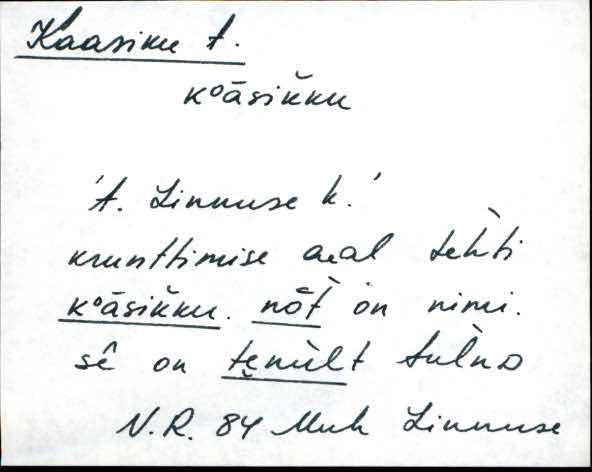 Kaasiku t.
kᵒāsiǩku
'A. Linnuse k.'
krunttimise aeal tehti
kᵒāsiǩku. nõt̀ on nimi.
sê on tęnùlt tulnᴅ
N.R. 84 Muh Linnuse